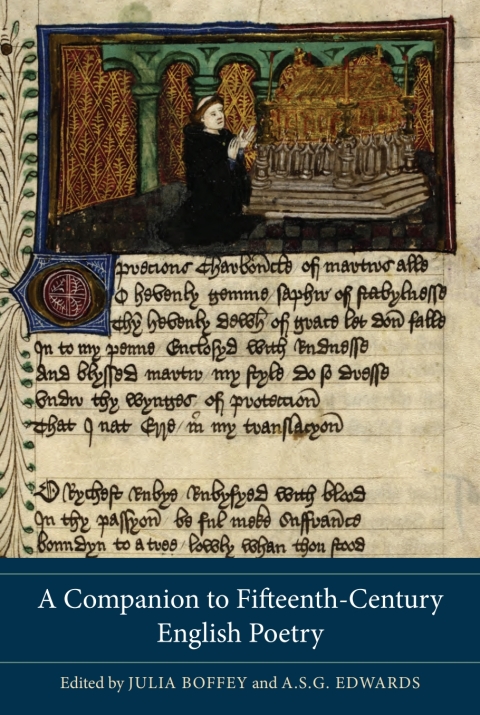 O precious Charboncle of martirs alle
O hevenly gemme saphir of stabylnesse
Thy hevenly dewh of grace let don falle
In to my penne Enclosyd with Rudnesse
And blyssed martir my style do so dresse
Vndir thy wynges of proteccion
That I nat Erre / in my translacyon
O Rychest Rubye Rubyfyed with blood
In thy passyon be ful meke Suffrance
Bonndyn to a tree / lowly whan thou stood
A Companion to Fifteenth-Century
English Poetry
Edited by JULIA BOFFEY and A.S.G. EDWARDS